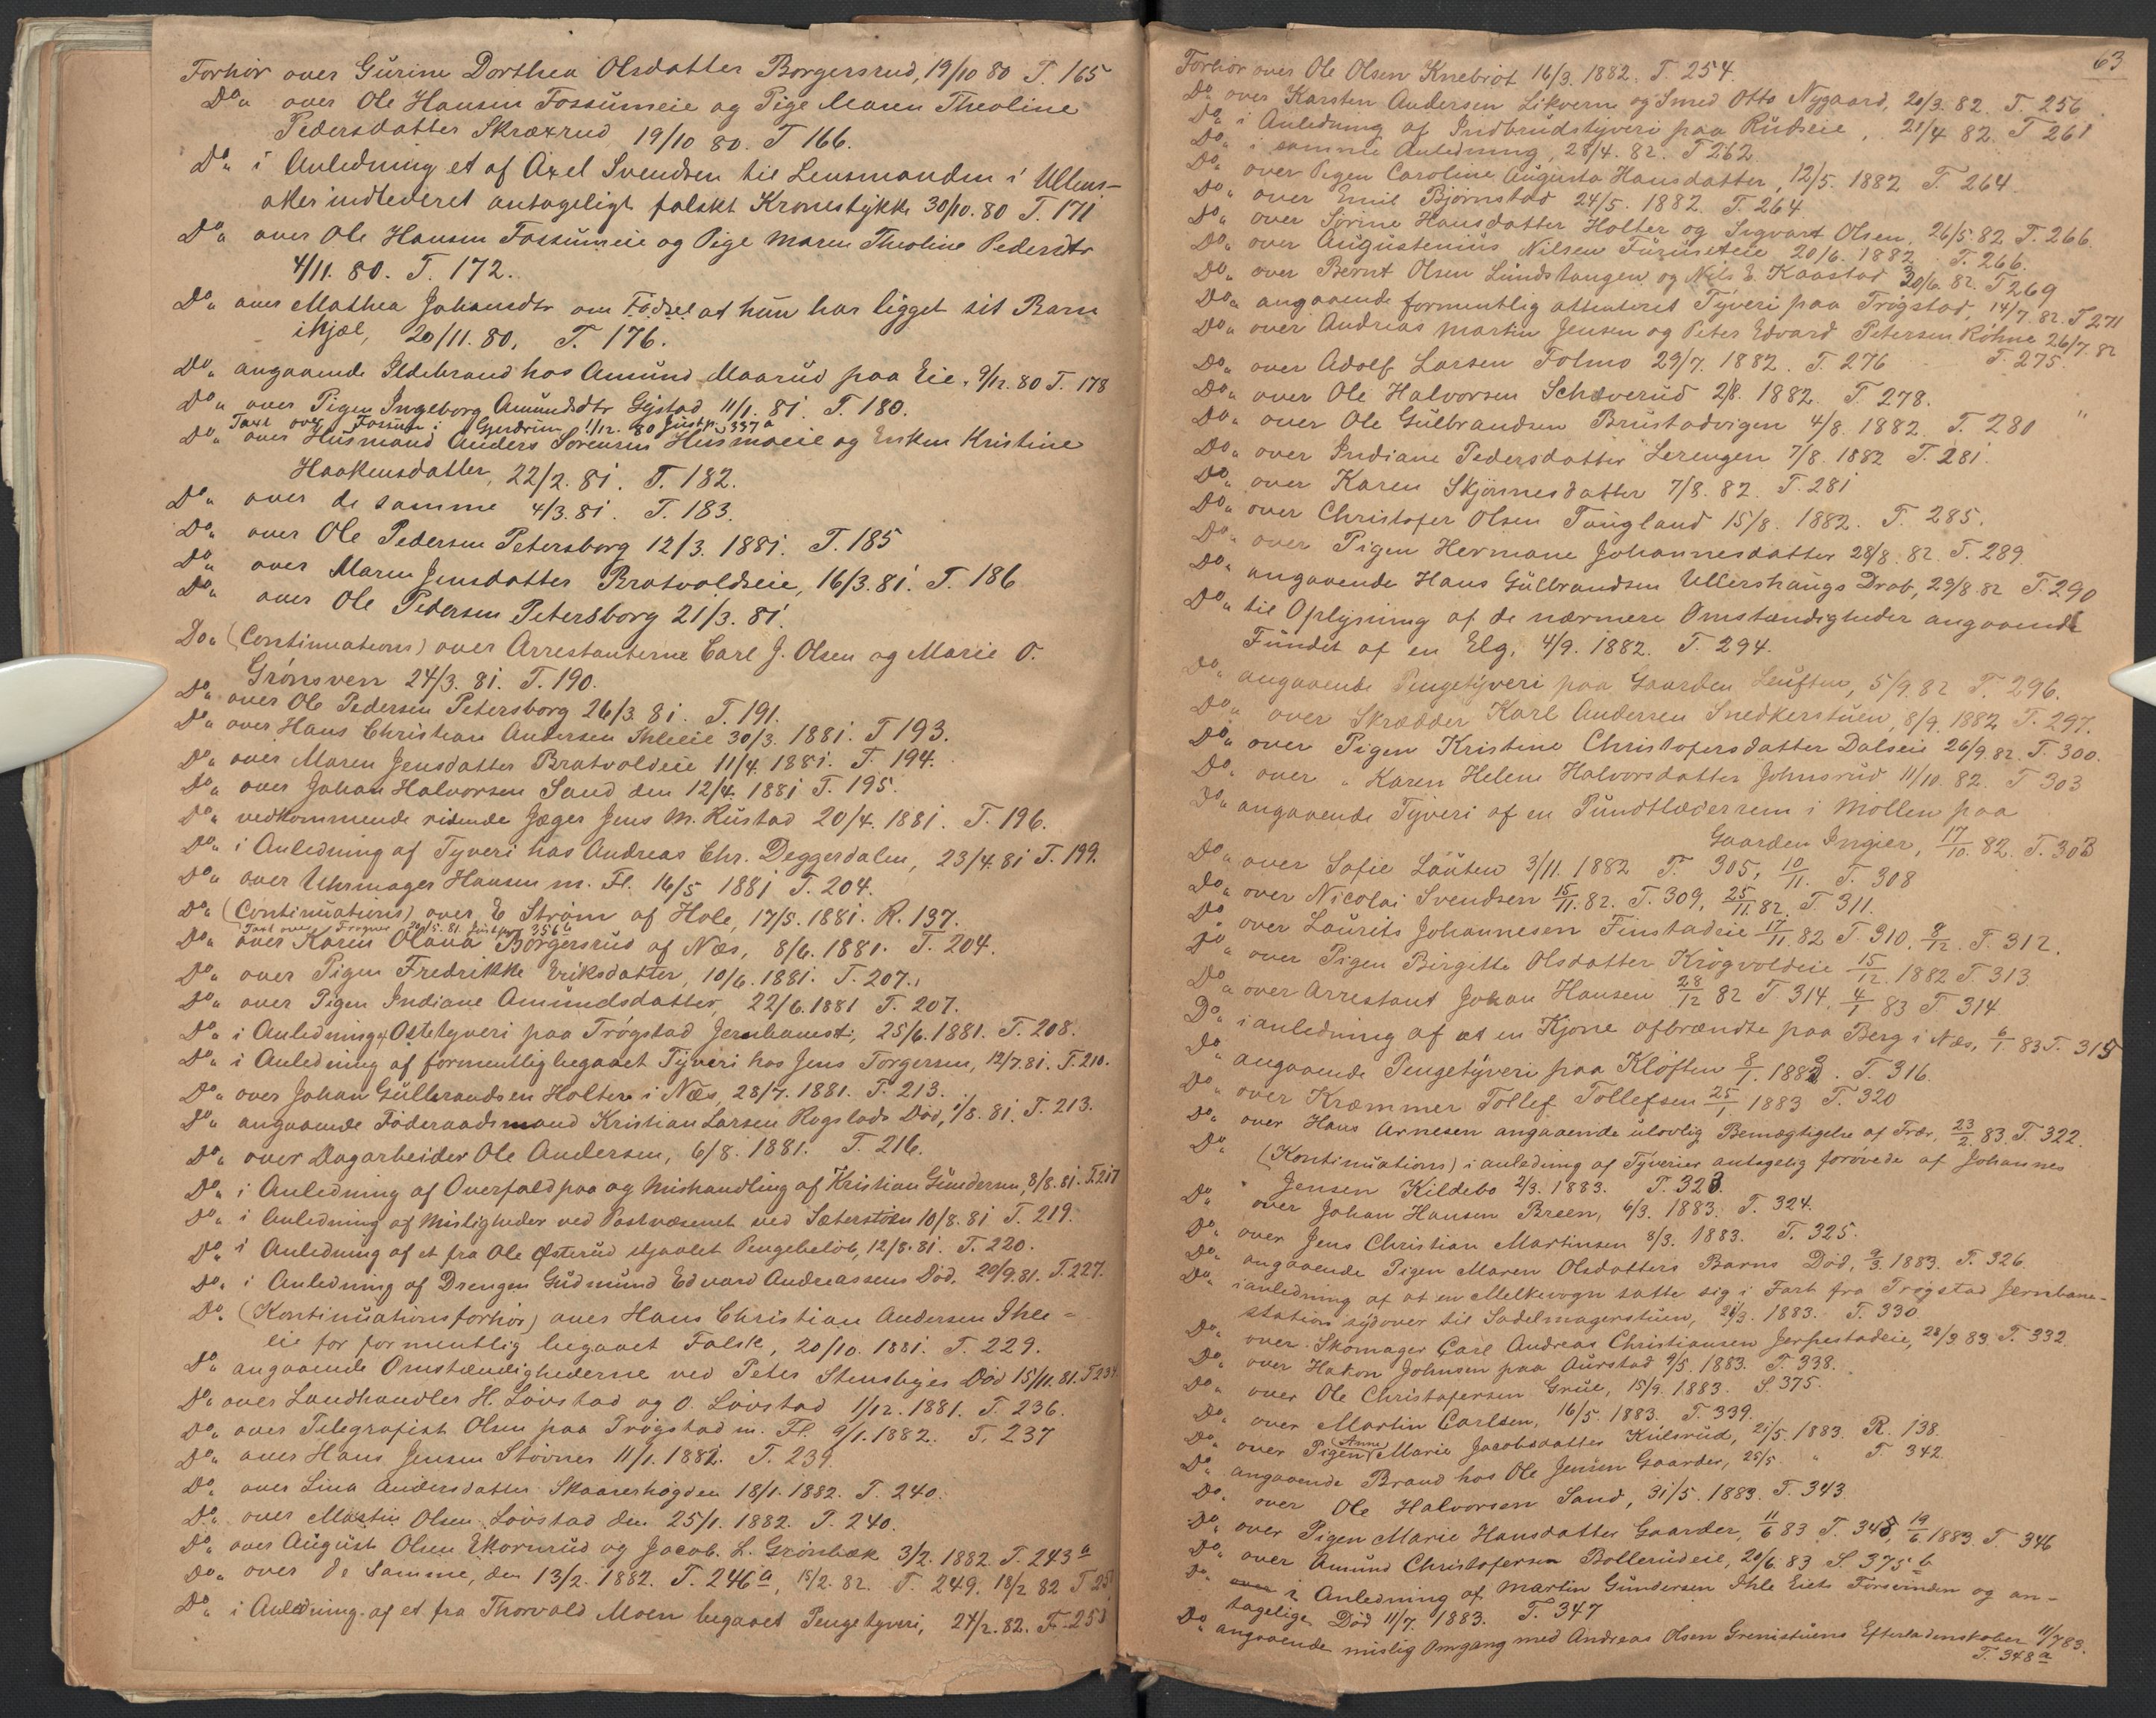 Forhör over Gurine Dorthea Olsdatter Borgersrud, 19/10 80 T. 165
Do„ over Ole Hansen Fossumeie og Pige Maren Theoline
Pedersdatter Skræxrud 19/10 80. T 166.
Do„ i Anledning et af Axel Svendsen til Lensmanden i Ullens-
aker indleveret antageligt falskt Kronestykke 30/10. 80 T. 171
Do„ over Ole Hansen Fossumeie og Pige Maren Theoline Pedersdtr
4/11. 80. T. 172.
Do„ over Mathea Johansdtr om Födsel at hun har ligget sit Barn
ihjæl, 20/11. 80, T. 176.
Do„ angaaende Ildebrand hos Amund Maarud paa Eie, 9/12. 80 T. 178
Do„ over Pigen Ingeborg Amundsdtr Gjstad 11/1. 81. T. 180.
Taxt over Fossum i Gjerdrum 1/12. 80 Justp. 337a
Do„ over Husmand Anders Sorensen Husmoeie og Enken Kristine
Haakensdatter, 22/2. 81. T. 182.
Do„ over de samme 4/3. 81. T. 183.
Do„ over Ole Pedersen Petersborg 12/3. 1881. T. 185
Do„ over Maren Jensdatter Bratvoldseie, 16/3. 81. T. 186
Do„ over Ole Pedersen Petersborg 21/3. 81.
Do„ (Continuations) over Arrestanterne Carl J. Olsen og Marie O.
Grönsven 24/3. 81. T. 190.
Do„ over Ole Pedersen Petersborg 26/3 81. T. 191.
Do„ over Hans Christian Andersen Ihleeie 30/3. 1881. T 193.
Do„ over Maren Jensdatter Bratvoldeie 11/4. 1881. T. 194.
Do„ over Johan Halvorsen Sand den 12/4. 1881 T. 195.
Do„ vedkommende ridende Jæger Jens M. Rustad 20/4. 1881. T. 196.
Do„ i Anledning af Tyveri hos Andreas Chr. Deggerdalen, 23/4. 81 T. 199.
Do„ over Uhrmager Hansen m. Fl. 16/5 1881 T. 204.
Do„ (Continuations) over E Ström af Hole, 17/5. 1881. R. 137.
Taxt over Frogner 20/5. 81. Justpr. 356b
Do„ over Karen Olava Borgersrud af Næs, 8/6. 1881. T. 204.
Do„ over Pigen Fredrikke Eriksdatter, 10/6. 1881. T. 207.
Do„ over Pigen Indiane Amundsdatter, 22/6. 1881 T. 207.
Do„ i Anledning af Ostetyveri paa Trögstad Jernbanest:, 25/6. 1881. T. 208.
Do„ i Anledning af formentlig begaaet Tyveri hos Jens Torgersen, 12/7. 81. T. 210.
Do„ over Johan Gulbrandsen Holter i Næs, 28/7. 1881. T. 213.
Do„ angaaende Föderaadsmand Kristian Larsen Rogstads Död, 1/8. 81. T. 213.
Do„ over Dagarbeider Ole Andersen, 6/8. 1881. T. 216.
Do„ i Anledning af Overfald paa og Mishandling af Kristian Gundersen, 8/8. 81. T. 217
Do„ i Anledning af Misligheder ved Postvæsenet ved Sæterstöen 10/8. 81 T. 219.
Do„ i Anledning af et fra Ole Österud stjaalet Pengebelöb, 12/8. 81. T. 220.
Do„ i Anledning af Drengen Gudmund Edvard Andreassens Död, 29/9. 81. T. 227.
Do. (Kontinuationsforhör) over Hans Christian Andersen Ihle-
eie for formentlig begaaet Falsk, 20/10. 1881. T. 229.
Do„ angaaende Omstændighederne ved Peter Stensbyes Död 15/11. 81. T 234
Do„ over Landhandler H. Lövstad og O. Lövstad 1/12. 1881. T. 236.
Do„ over Telegrafist Olsen paa Trögstad m. Fl. 9/1. 1882. T. 237
Do„ over Hans Jensen Stövner 11/1. 1882. T. 239.
Do„ over Lina Andersdatter Skaarerhögden 18/1. 1882. T. 240.
Do„ over Martin Olsen Lövstad den 25/1. 1882. T. 240.
Do„ over August Olsen Ekornrud og Jacob. L. Grönbæk 3/2. 1882 T. 243a
Do„ over de Samme, den 13/2. 1882. T. 246a, 15/2. 82. T. 249. 18/2 82 T 25
Do„ i Anledning af et fra Thorvald Moen begaaet Pengetyveri, 24/2. 82. T. 253
63
Forhör over Ole Olsen Knebröt 16/3. 1882. T. 254.
Do over Karsten Andersen Likvern og Smed Otto Nygaard, 20/3. 82. T. 256
Do„ i Anledning af Indbrudstyveri paa Rudseie, 21/4 82. T 261
Do„ i samme Anledning, 28/4. 82. T 262
Do„ over Pigen Caroline Augusta Hansdatter, 12/5. 1882 T. 264
Do„ over Emil Björnstad 24/5. 1882. T. 264
Do„ over Sorine Hansdatter Holter og Sigvart Olsen, 26/5 82 T. 266.
Do„ over Augustenius Nilsen Furuseteie 20/6. 1882 T. 266.
Do„ over Bernt Olsen Lundstangen og Nils E. Kaastad 30/6. 82. T 269
Do„ angaaende formentlig attenteret Tyveri paa Trögstad, 14/7. 82. T 271
Do„ over Andreas Martin Jensen og Peter Edvard Petersen Röhne 26/7. 82
T. 275.
Do„ over Adolf Larsen Folmo 29/7. 1882. T. 276
Do„ over Ole Halvorsen Schöverud 2/8. 1882. T. 278.
Do„ over Ole Gulbrandsen Brustadvigen 4/8. 1882 T. 280 „
Do„ over Indiane Pedersdatter Lerengen 7/8. 1882 T. 281.
Do„ over Karen Skjönnesdatter 7/8. 82. T. 281
Do„ over Christofer Olsen Taugland 15/8. 1882. T. 285.
Do„ over Pigen Hermane Johannesdatter 28/8. 82. T. 289.
Do„ angaaende Hans Gulbrandsen Ullershaugs Drab, 29/8. 82 T. 290
Do„ til Oplysning af de nærmere Omstændigheder angaaende
Fundet af en Elg, 4/9. 1882. T. 294.
Do„ angaaende Pengetyveri paa Gaarden Leuften, 5/9. 82 T. 296.
Do„ over Skrædder Karl Andersen Snedkerstuen, 8/9. 1882 T. 297.
Do„ over Pigen Kristine Christofersdatter Dalseie 26/9. 82. T. 300.
Do„ over „ Karen Helene Halvorsdatter Johnsrud 11/10. 82. T 303
Do„ angaaende Tyveri af en Pundtlæderrem i Möllen paa
Gaarden Ingier, 17/10. 82. T. 303
Do„ over Sofie Lauten 3/11. 1882 T. 305, 10/11. T. 308
Do„ over Nicolai Svendsen 15/11. 82. T. 309, 25/11. 82. T. 311.
Do„ over Laurits Johannesen Finstadeie 17/11. 82 T. 310. 9/12. T. 312.
Do„ over Pigen Birgitte Olsdatter Krogvoldeie 15/12. 1882 T 313.
Do„ over Arrestant Johan Hansen 28/12 82 T 314, 4/1 83 T 314
Do„ i anledning af at en Kjone afbrændte paa Berg i Næs, 6/1. 83 T. 315
Do„ angaaende Pengetyveri paa Klöften 8/1. 1883. T. 316.
Do„ over Kræmmer Tollef Tollefsen 25/1 1883 T. 320
Do„ over Hans Arnesen angaaende ulovlig Bemægtigelse af Trær, 23/2. 83. T. 322.
Do„ (Kontinuations) i anledning af Tyverier antagelig forövede af Johannes
Jensen Kildebo 2/3. 1883. T. 323.
Do„ over Johan Hansen Breen, 6/3. 1883. T. 324.
Do„ over Jens Christian Martinsen 8/3. 1883. T. 325.
Do„ angaaende Pigen Maren Olsdatters Barns Död, 9/3. 1883. T. 326.
Do„ i anledning af at en Melkevogn satte sig i Fart fra Trögstad Jernbane-
station sydover til Sadelmagerstuen, 21/3. 1883. T. 330
Do„ over Skomager Carl Andreas Christiansen Jerpestadeie, 28/3. 83. T. 332
Do„ over Hakon Johnsen paa Aurstad 9/5. 1883. T. 338.
Do„ over Ole Christofersen Grue, 15/9. 1883. S. 375.
Do„ over Martin Carlsen, 16/5. 1883. T. 339.
Do„ over Pigen (Anne) Marie Jacobsdatter Kulsrud, 21/5. 1883. R. 138.
Do„ angaaende Brand hos Ole Jensen Gaarder, 25/5. „ T. 342.
Do„ over Ole Halvorsen Sand, 31/5. 1883. T. 343
Do„ over Pigen Marie Hansdatter Gaarder, 11/6 83 T. 345, 19/6 1883. T. 346
Do„ over Amund Christofersen Bollerudeie, 20/6. 83 S. 375b
Do„ over i Anledning af Martin Gundersen Ihle Eiets Forsvinden og an-
tagelige Död 11/7. 1883. T. 347
Do„ angaaende mislig Omgang med Andreas Olsen Grenistuens Efterladenskaber 11/7 83.
T. 348a